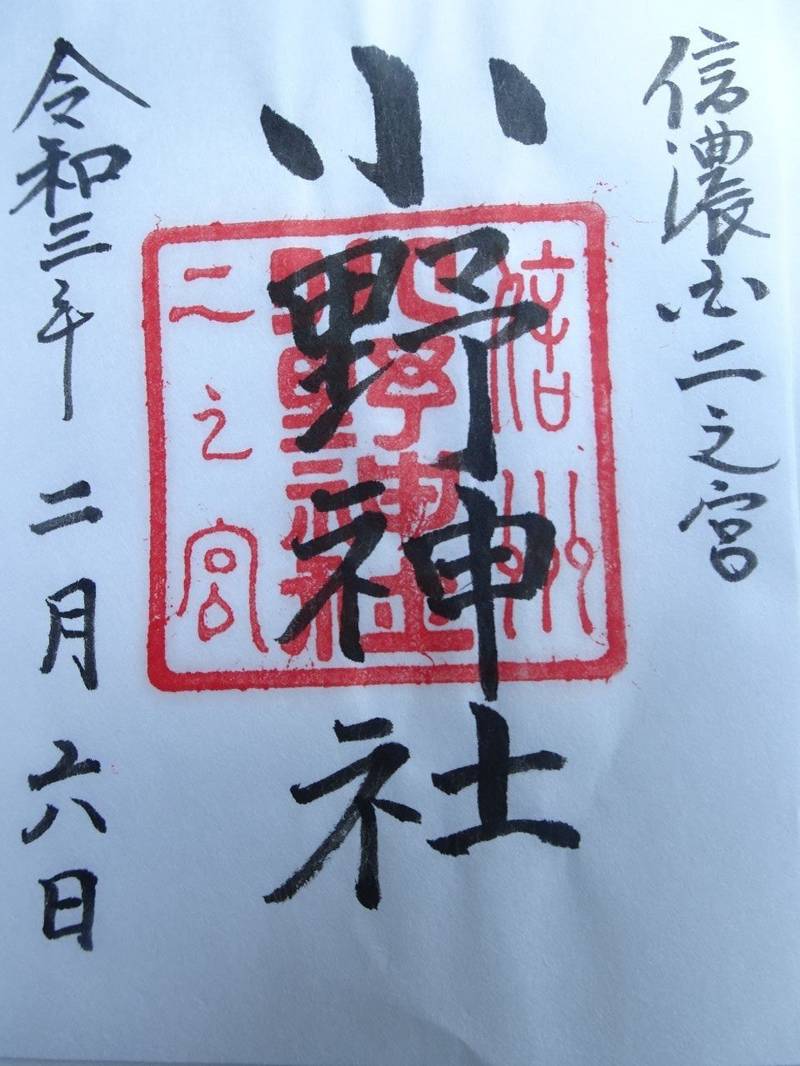 信濃国二之宮
小野神社
信州
小野神社
二之宮
令和三年 二月 六日